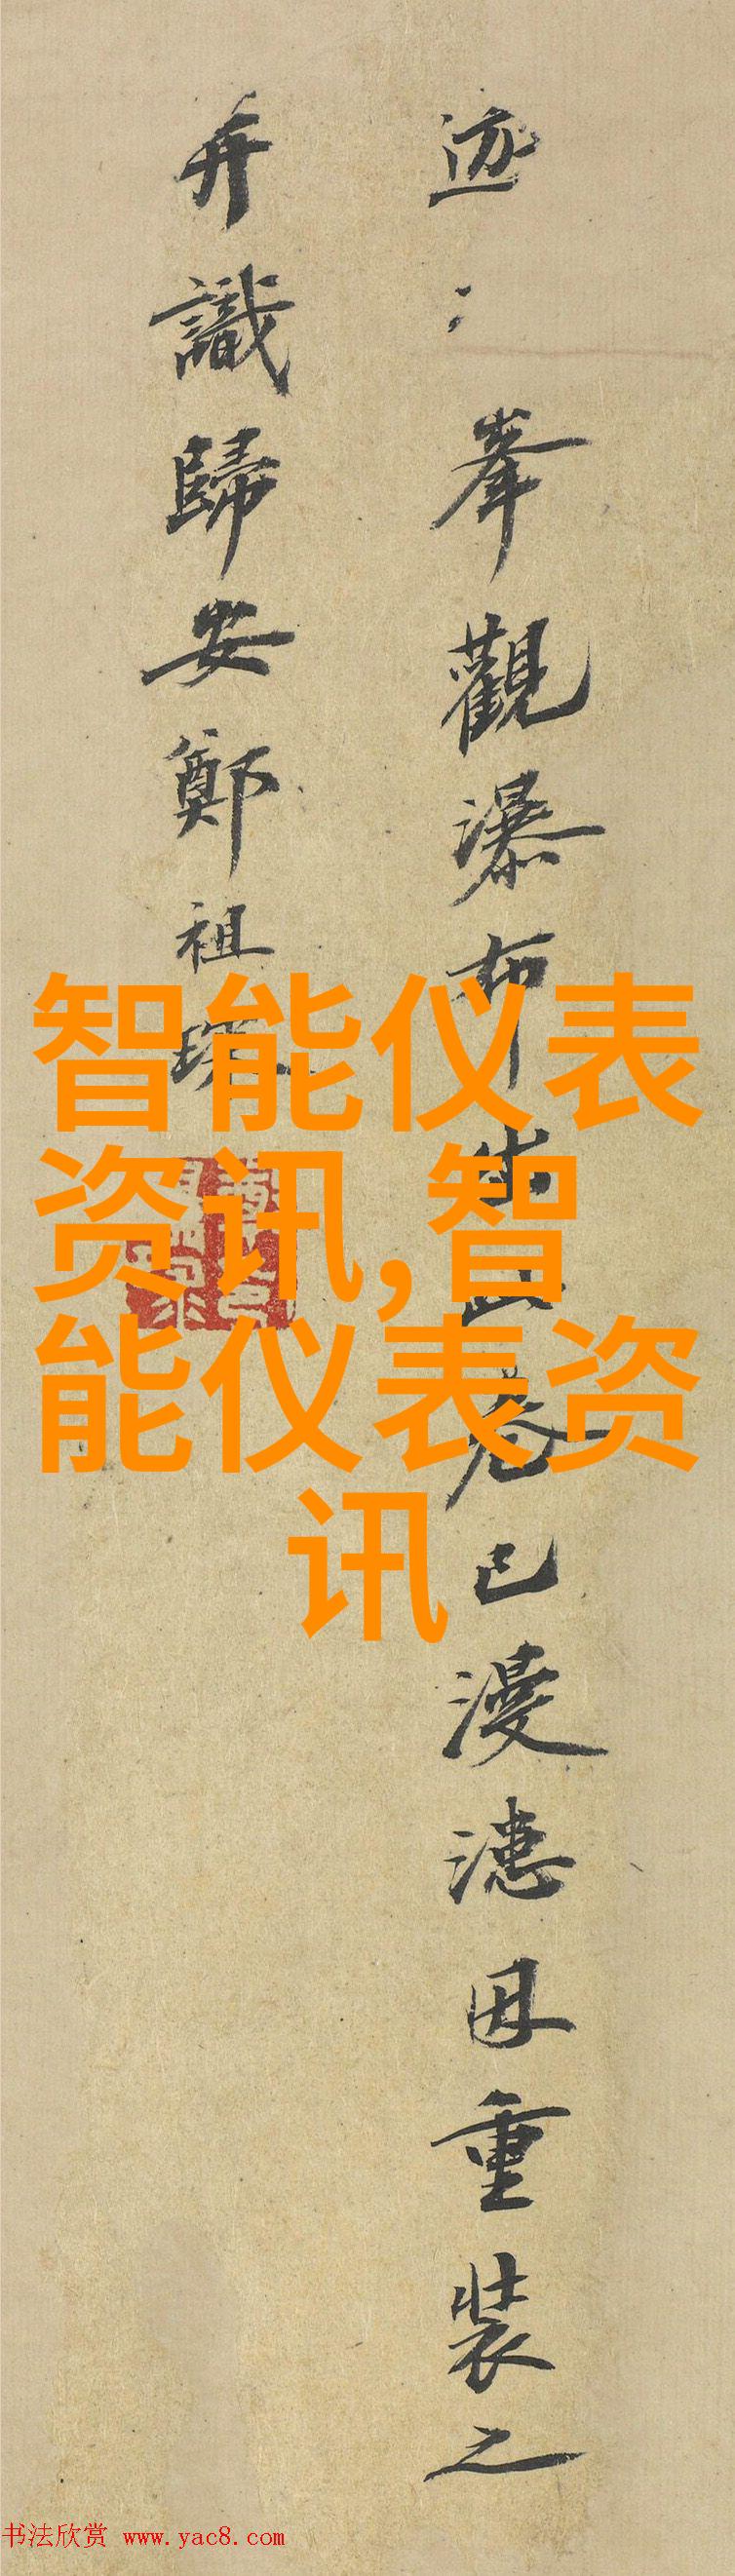 迹〻峯觀瀑布
卷已漫漶因重裝之
弆識歸安鄭祖琛
智能仪表
资讯,智
能仪表资
讯
书法欣赏 www.yac8.com